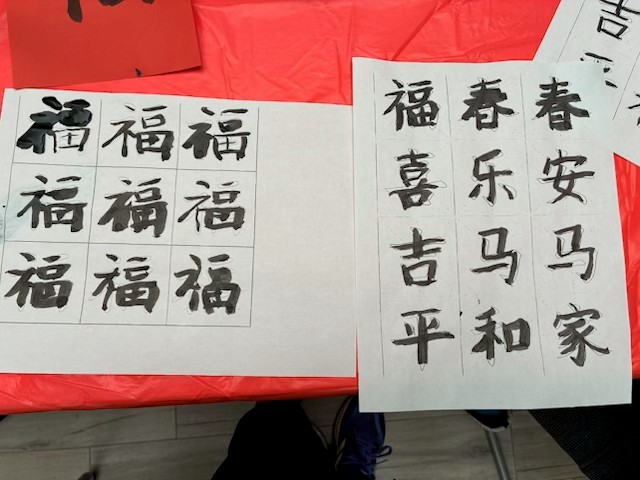 福福福
福福福
福福福
福春春
喜乐安
吉马马
平和家
吉